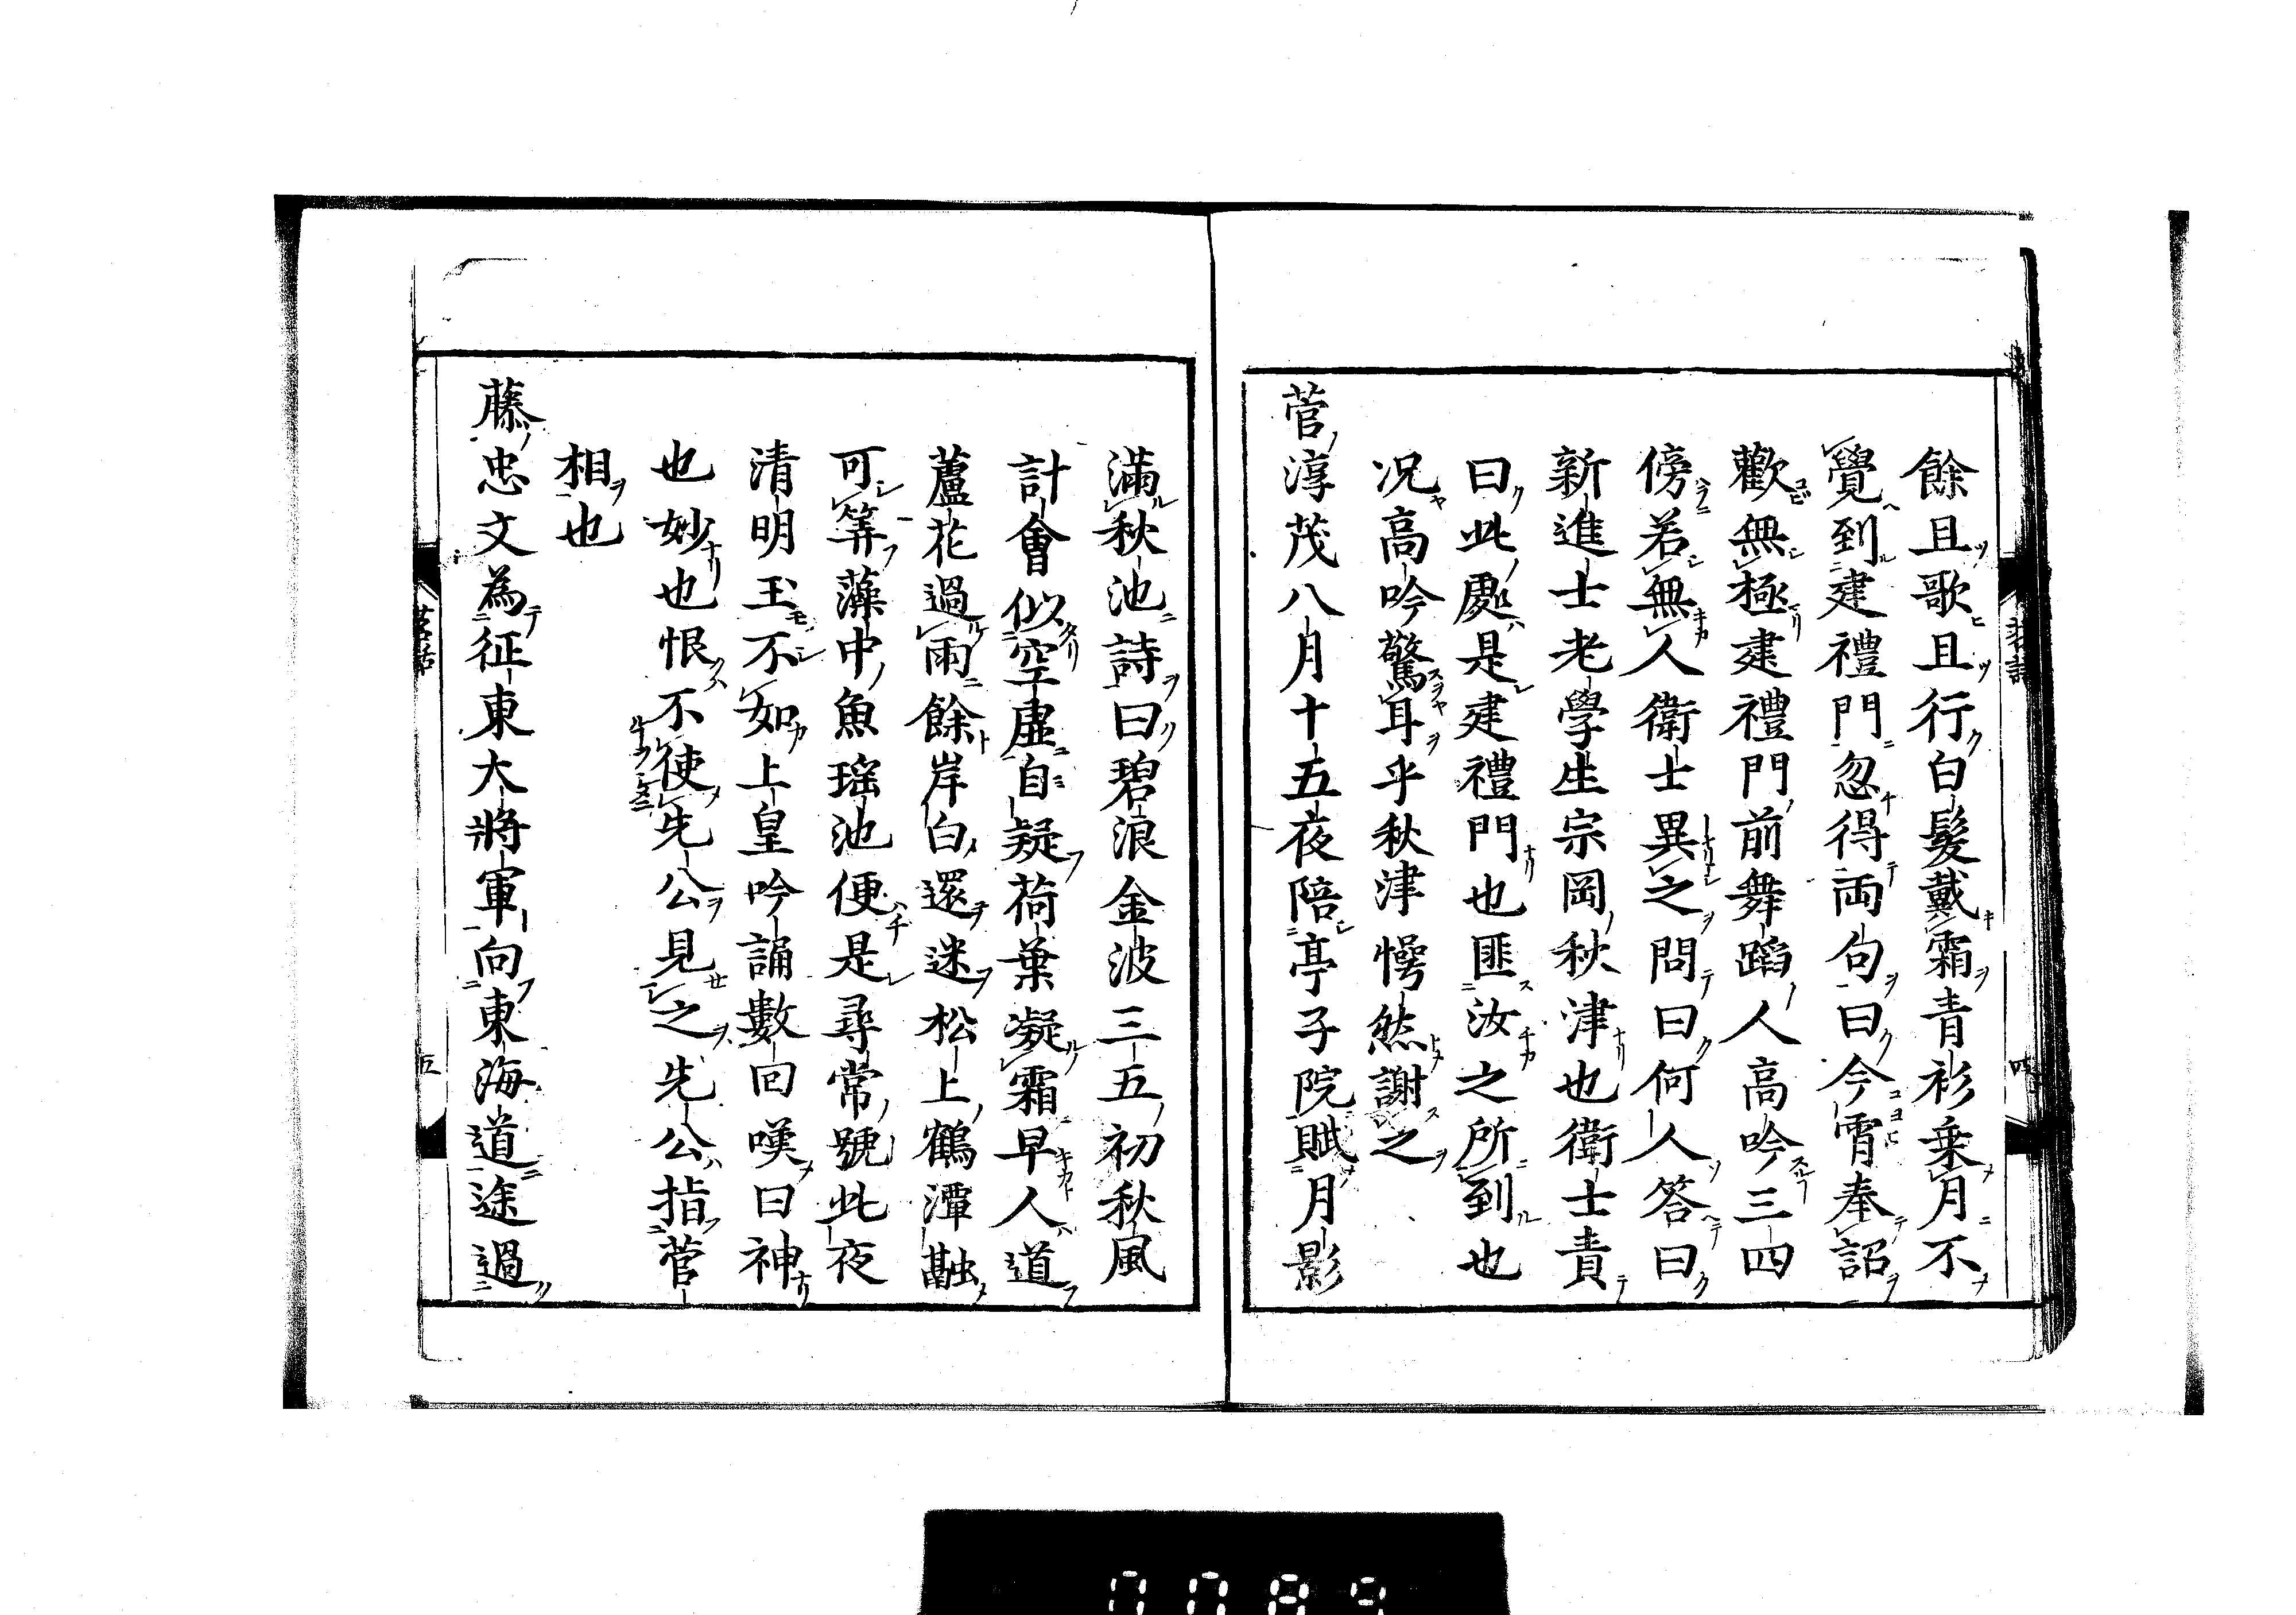 餘且歌且行白髮戴霜青衫乗月不
覺到建禮門忽得両句曰今宵奉詔
歡無極建禮門前舞蹈人高吟三四
傍若無人衛士異之問曰何人答曰
新進士老學生宗岡秋津也衛士責
曰此處是建禮門也匪汝之所到也
况高吟驚耳乎秋津愕然謝之
菅淳茂八月十五夜陪亭子院賦月影
滿秋池詩曰碧浪金波三五初秋風
計會似空虚自疑荷葉凝霜早人道
蘆花過雨餘岸白還迷松上鶴潭融
可筭藻中魚瑶池便是尋常號此夜
清明玉不如上皇吟誦數回嘆曰神
也妙也恨不使先公見之先公指菅
相也
藤忠文為征東大將軍向東海道途過